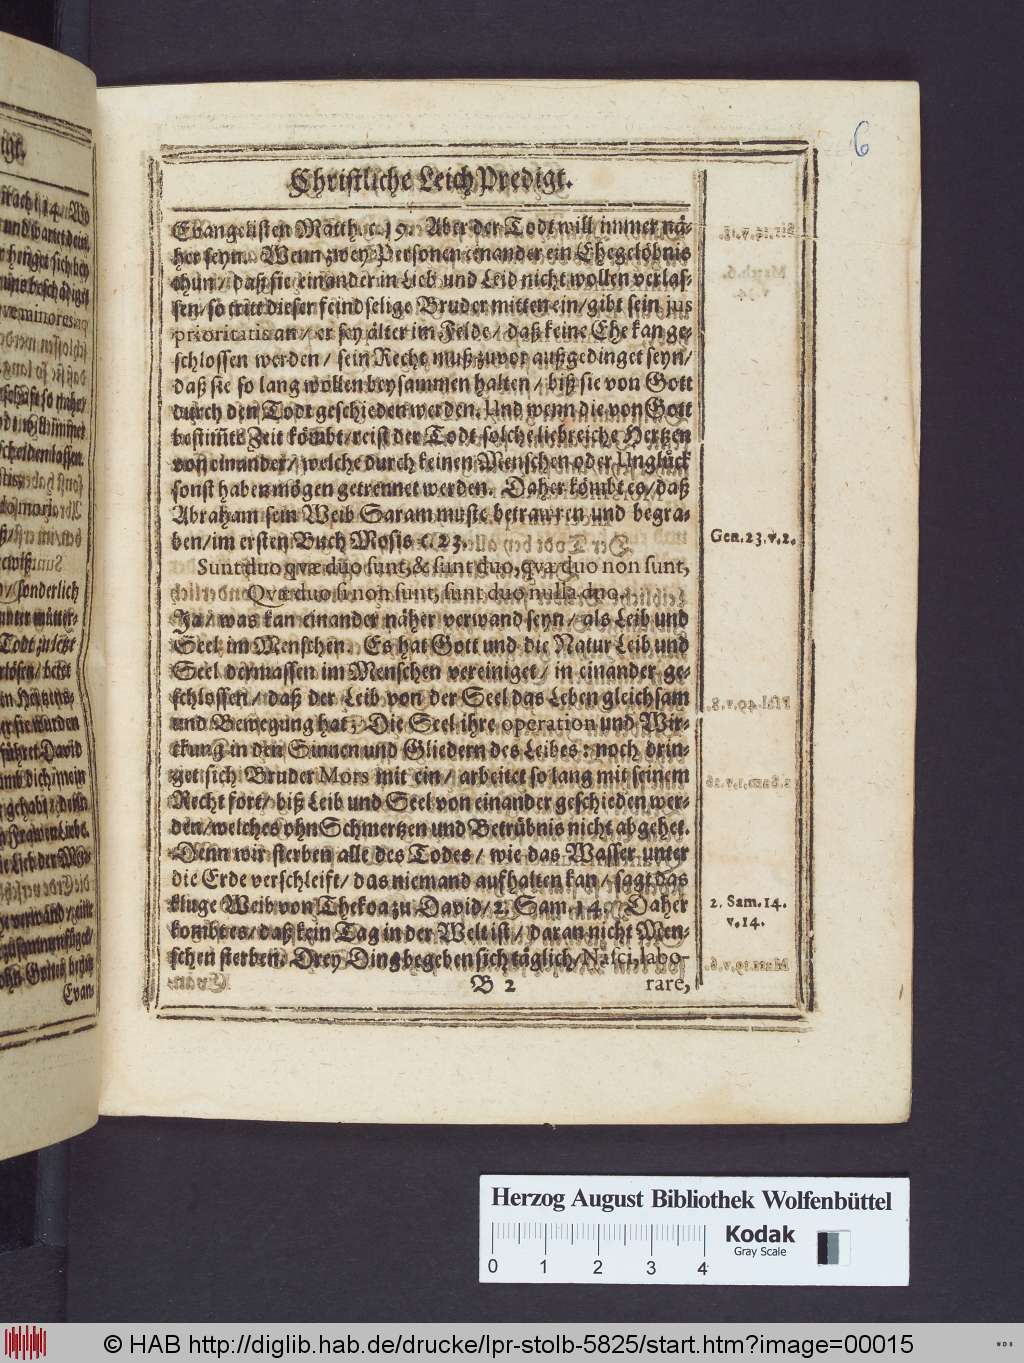 6
Christliche Leich Predigt.
Evangelisten Matth. c. 19. Aber der Todt will immer nä-
her seyn. Wenn zwey Personen einander ein Ehegelöbnis
thun / daß sie einander in Lieb und Leid nicht wollen verlas-
sen / so tritt dieser feindselige Bruder mitten ein / gibt sein jus
prioritatis an / er sey älter im Felde / daß keine Ehe kan ge-
schlossen werden / sein Recht muß zuvor außgedinget seyn /
daß sie so lang wollen beysammen halten / biß sie von Gott
durch den Todt geschieden werden. Und wenn die von Gott
bestimte Zeit kömbt / reist der Todt solche liebreiche Hertzen
von einander / welche durch keinen Menschen oder Unglück
sonst haben mögen getrennet werden. Daher kömbt es / daß
Abraham sein Weib Saram muste betrawren und begra-
ben / im ersten Buch Mosis c. 23.
Gen. 23. v. 2.
Sunt duo qvæ duo sunt, & sunt duo, qvæ duo non sunt,
Qvæ duo si non sunt, sunt duo nulla duo.
Ja / was kan einander näher verwand seyn / als Leib und
Seel im Menschen. Es hat Gott und die Natur Leib und
Seel dermassen im Menschen vereiniget / in einander ge-
schlossen / daß der Leib von der Seel das Leben gleichsam
und Bewegung hat; Die Seel ihre operation und Wir-
ckung in den Sinnen und Gliedern des Leibes: noch drin-
get sich Bruder Mors mit ein / arbeitet so lang mit seinem
Recht fort / biß Leib und Seel von einander geschieden wer-
den / welches ohn Schmertzen und Betrübnis nicht abgehet.
Denn wir sterben alle des Todes / wie das Wasser unter
die Erde verschleifft / das niemand auffhalten kan / sagt das
kluge Weib von Thekoa zu David / 2. Sam. 14. Daher
2. Sam. 14.
v. 14.
kombt es / daß kein Tag in der Welt ist / daran nicht Men-
schen sterben. Drey Ding begeben sich täglich / Nasci, labo-
B 2
rare,
Herzog August Bibliothek Wolfenbüttel
0 1 2 3 4
Kodak
Gray Scale
© HAB http://diglib.hab.de/drucke/lpr-stolb-5825/start.htm?image=00015